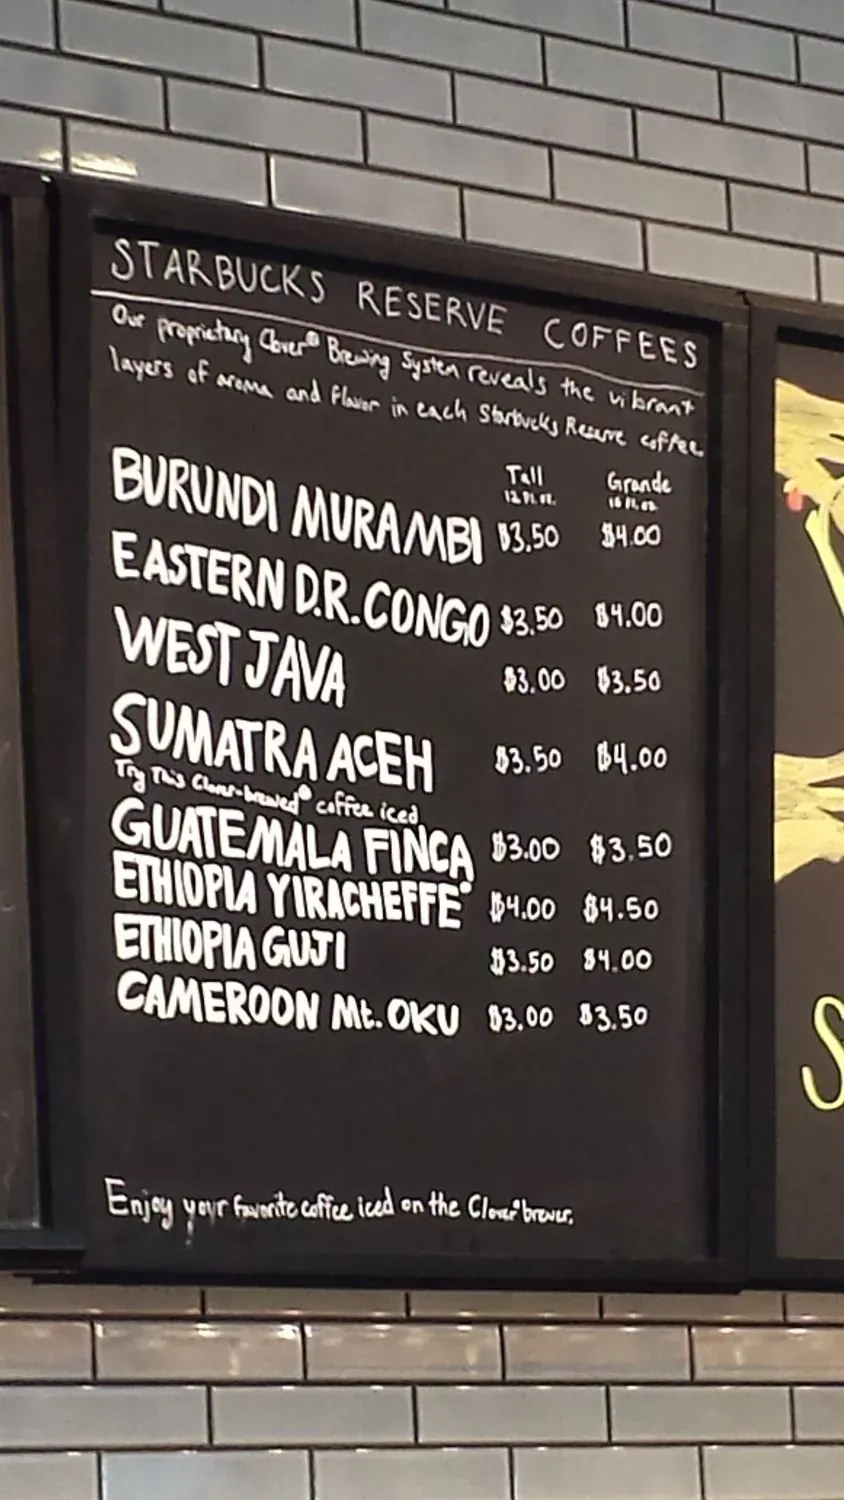 STARBUCKS RESERVE COFFEES
Our proprietary Clover® Brewing System reveals the vibrant
layers of aroma and flavor in each Starbucks Reserve coffee.
Tall Grande
12 fl. oz. 16 fl. oz.
BURUNDI MURAMBI $3.50 $4.00
EASTERN D.R. CONGO $3.50 $4.00
WEST JAVA $3.00 $3.50
SUMATRA ACEH $3.50 $4.00
Try This Clover-brewed® coffee iced
GUATEMALA FINCA $3.00 $3.50
ETHIOPIA YIRACHEFFE* $4.00 $4.50
ETHIOPIA GUJI $3.50 $4.00
CAMEROON Mt. OKU $3.00 $3.50
Enjoy your favorite coffee iced on the Clover® brewer.
S